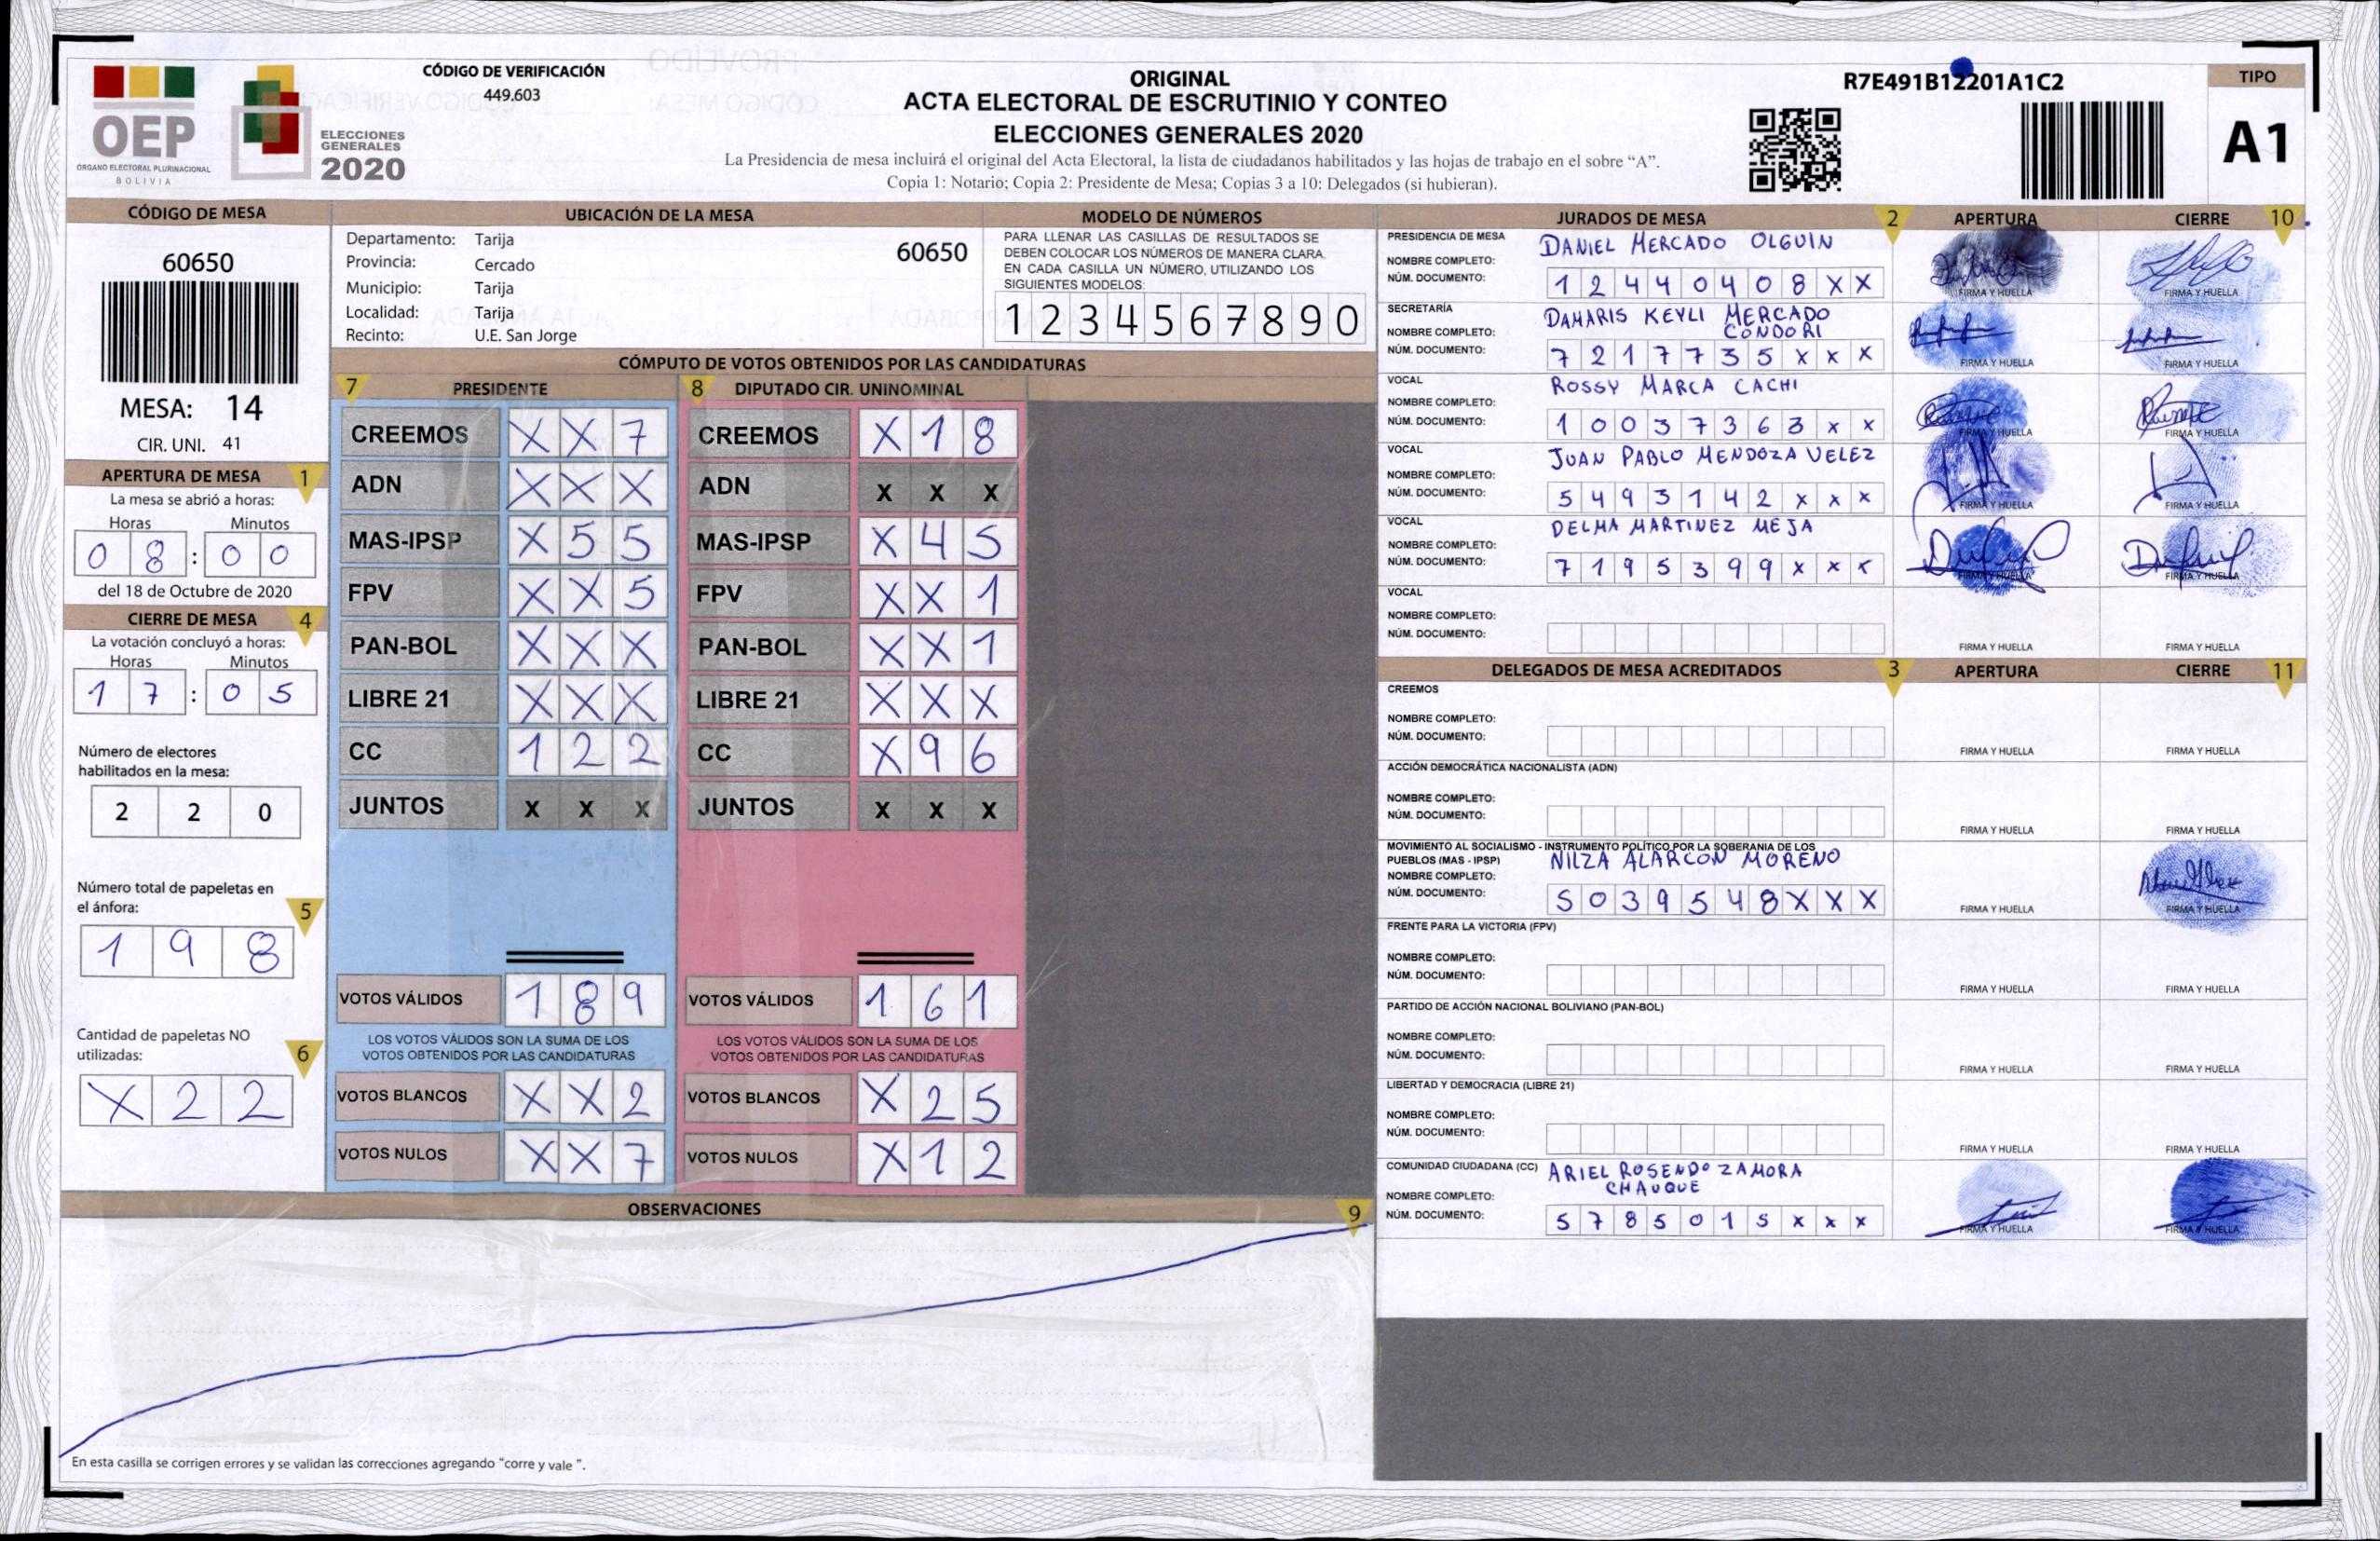 OEP
ÓRGANO ELECTORAL PLURINACIONAL
BOLIVIA
ELECCIONES
GENERALES
2020
CÓDIGO DE VERIFICACIÓN
449.603
ORIGINAL
ACTA ELECTORAL DE ESCRUTINIO Y CONTEO
ELECCIONES GENERALES 2020
La Presidencia de mesa incluirá el original del Acta Electoral, la lista de ciudadanos habilitados y las hojas de trabajo en el sobre “A”.
Copia 1: Notario; Copia 2: Presidente de Mesa; Copias 3 a 10: Delegados (si hubieran).
R7E491B12201A1C2
TIPO
A1
CÓDIGO DE MESA
60650
MESA: 14
CIR. UNI. 41
APERTURA DE MESA 1
La mesa se abrió a horas:
Horas Minutos
0 8 : 0 0
del 18 de Octubre de 2020
CIERRE DE MESA 4
La votación concluyó a horas:
Horas Minutos
1 7 : 0 5
Número de electores
habilitados en la mesa:
2 2 0
Número total de papeletas en
el ánfora: 5
1 9 8
Cantidad de papeletas NO
utilizadas: 6
X 2 2
UBICACIÓN DE LA MESA
Departamento: Tarija
Provincia: Cercado
Municipio: Tarija
Localidad: Tarija
Recinto: U.E. San Jorge
60650
MODELO DE NÚMEROS
PARA LLENAR LAS CASILLAS DE RESULTADOS SE
DEBEN COLOCAR LOS NÚMEROS DE MANERA CLARA.
EN CADA CASILLA UN NÚMERO, UTILIZANDO LOS
SIGUIENTES MODELOS:
1 2 3 4 5 6 7 8 9 0
CÓMPUTO DE VOTOS OBTENIDOS POR LAS CANDIDATURAS
7 PRESIDENTE 8 DIPUTADO CIR. UNINOMINAL
CREEMOS X X 7 CREEMOS X 1 8
ADN X X X ADN X X X
MAS-IPSP X 5 5 MAS-IPSP X 4 5
FPV X X 5 FPV X X 1
PAN-BOL X X X PAN-BOL X X 1
LIBRE 21 X X X LIBRE 21 X X X
CC 1 2 2 CC X 9 6
JUNTOS X X X JUNTOS X X X
VOTOS VÁLIDOS 1 8 9 VOTOS VÁLIDOS 1 6 1
LOS VOTOS VÁLIDOS SON LA SUMA DE LOS LOS VOTOS VÁLIDOS SON LA SUMA DE LOS
VOTOS OBTENIDOS POR LAS CANDIDATURAS VOTOS OBTENIDOS POR LAS CANDIDATURAS
VOTOS BLANCOS X X 2 VOTOS BLANCOS X 2 5
VOTOS NULOS X X 7 VOTOS NULOS X 1 2
OBSERVACIONES 9
En esta casilla se corrigen errores y se validan las correcciones agregando “corre y vale ”.
JURADOS DE MESA 2 APERTURA CIERRE 10
PRESIDENCIA DE MESA DANIEL MERCADO OLGUIN
NOMBRE COMPLETO:
NÚM. DOCUMENTO: 1 2 4 4 0 4 0 8 X X FIRMA Y HUELLA FIRMA Y HUELLA
SECRETARÍA DAMARIS KEYLI MERCADO
NOMBRE COMPLETO: CONDORI
NÚM. DOCUMENTO: 7 2 1 7 7 3 5 X X X FIRMA Y HUELLA FIRMA Y HUELLA
VOCAL ROSSY MARCA CACHI
NOMBRE COMPLETO:
NÚM. DOCUMENTO: 1 0 0 3 7 3 6 3 X X FIRMA Y HUELLA FIRMA Y HUELLA
VOCAL JUAN PABLO MENDOZA VELEZ
NOMBRE COMPLETO:
NÚM. DOCUMENTO: 5 4 9 3 1 4 2 X X X FIRMA Y HUELLA FIRMA Y HUELLA
VOCAL DELMA MARTINEZ MEJA
NOMBRE COMPLETO:
NÚM. DOCUMENTO: 7 1 9 5 3 9 9 X X X FIRMA Y HUELLA FIRMA Y HUELLA
VOCAL
NOMBRE COMPLETO:
NÚM. DOCUMENTO: FIRMA Y HUELLA FIRMA Y HUELLA
DELEGADOS DE MESA ACREDITADOS 3 APERTURA CIERRE 11
CREEMOS
NOMBRE COMPLETO:
NÚM. DOCUMENTO: FIRMA Y HUELLA FIRMA Y HUELLA
ACCIÓN DEMOCRÁTICA NACIONALISTA (ADN)
NOMBRE COMPLETO:
NÚM. DOCUMENTO: FIRMA Y HUELLA FIRMA Y HUELLA
MOVIMIENTO AL SOCIALISMO - INSTRUMENTO POLÍTICO POR LA SOBERANIA DE LOS
PUEBLOS (MAS - IPSP) NILZA ALARCON MORENO
NOMBRE COMPLETO:
NÚM. DOCUMENTO: 5 0 3 9 5 4 8 X X X FIRMA Y HUELLA FIRMA Y HUELLA
FRENTE PARA LA VICTORIA (FPV)
NOMBRE COMPLETO:
NÚM. DOCUMENTO: FIRMA Y HUELLA FIRMA Y HUELLA
PARTIDO DE ACCIÓN NACIONAL BOLIVIANO (PAN-BOL)
NOMBRE COMPLETO:
NÚM. DOCUMENTO: FIRMA Y HUELLA FIRMA Y HUELLA
LIBERTAD Y DEMOCRACIA (LIBRE 21)
NOMBRE COMPLETO:
NÚM. DOCUMENTO: FIRMA Y HUELLA FIRMA Y HUELLA
COMUNIDAD CIUDADANA (CC) ARIEL ROSENDO ZAMORA
CHAUQUE
NOMBRE COMPLETO:
NÚM. DOCUMENTO: 5 7 8 5 0 1 5 X X X FIRMA Y HUELLA FIRMA Y HUELLA